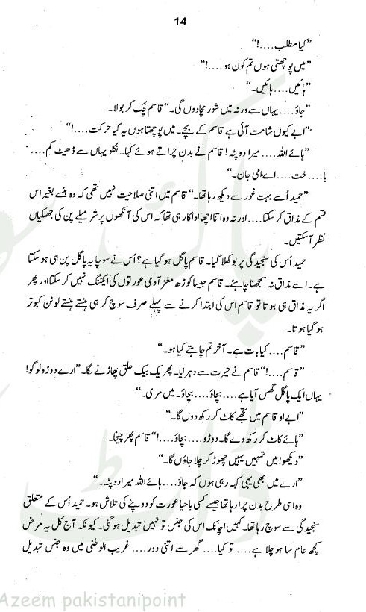 14
”کیا مطلب.....!“
”میں پوچھتی ہوں تم کون ہو.....!“
”ہائیں..... ہائیں۔“
”جاؤ..... یہاں سے ورنہ میں شور مچا دوں گی۔“ قاسم چک کر بولا۔
”ابے کیوں شامت آئی ہے قاسم کے بچے۔ میں پوچھتا ہوں یہ کیا حرکت.....!“
”ہائے اللہ..... میرا دوپٹہ! قاسم نے بدن چراتے ہوئے کہا۔ نکلو یہاں سے ڈھیٹ کم
ب.....خت.....اے امی جان۔“
”حمید اُسے بہت غور سے دیکھ رہا تھا۔“ قاسم میں اتنی صلاحیت نہیں تھی کہ وہ ہنسے بغیر اس
قسم کے مذاق کر سکتا..... اور نہ وہ اتنا اچھا اداکار ہی تھا کہ اس کی آنکھوں پر شرمیلے پن کی جھلکیاں
نظر آسکتیں۔
حمید اُس کی سنجیدگی پر بوکھلا گیا۔ قاسم پاگل ہو گیا ہے؟ اُس نے سوچا یہ پاگل پن ہی ہوسکتا
ہے۔ اسے مذاق نہ سمجھنا چاہئے۔ قاسم جیسا کوڑھ مغز آدمی عورتوں کی ایکٹنگ نہیں کرسکتا، پھر
اگر یہ مذاق ہی ہوتا تو قاسم اس کی ابتدا کرنے سے پہلے صرف سوچ کر ہی ہنستے ہنستے لوٹن کبوتر
ہوگیا ہوتا۔
”قاسم..... کیا بات ہے۔ آخر تم چاہتے کیا ہو۔“
”قاسم.....!“ قاسم نے حیرت سے دہرایا۔ پھر یک بیک حلق پھاڑنے لگا۔ ”ارے دوڑو لوگو!
یہاں ایک پاگل گھس آیا ہے..... بچاؤ..... بچاؤ۔ میں مری۔“
”ابے او قاسم میں تجھے کاٹ کر رکھ دوں گا۔“
”ہائے کاٹ کر رکھ دے گا۔ دوڑو..... بچاؤ.....!“ قاسم پھر چیخا۔
”دیکھو! میں تمہیں یہیں چھوڑ کر چلا جاؤں گا۔“
”ارے میں بھی یہی کہہ رہی ہوں کہ جاؤ..... ہائے اللہ میرا دوپٹہ۔“
وہ اسی طرح بدن چرا رہا تھا جیسے کسی باحیا عورت کو دوپٹے کی تلاش ہو۔ حمید اُس کے متعلق
سنجیدگی سے سوچ رہا تھا۔ کہیں اچانک اس کی جنس تو نہیں تبدیل ہوگئی۔ کیونکہ آج کل یہ مرض
کچھ عام سا ہو چلا ہے..... تو کیا..... گھر سے اتنی دور..... غریب الوطنی میں وہ جنس تبدیل
Azeem pakistanipoint